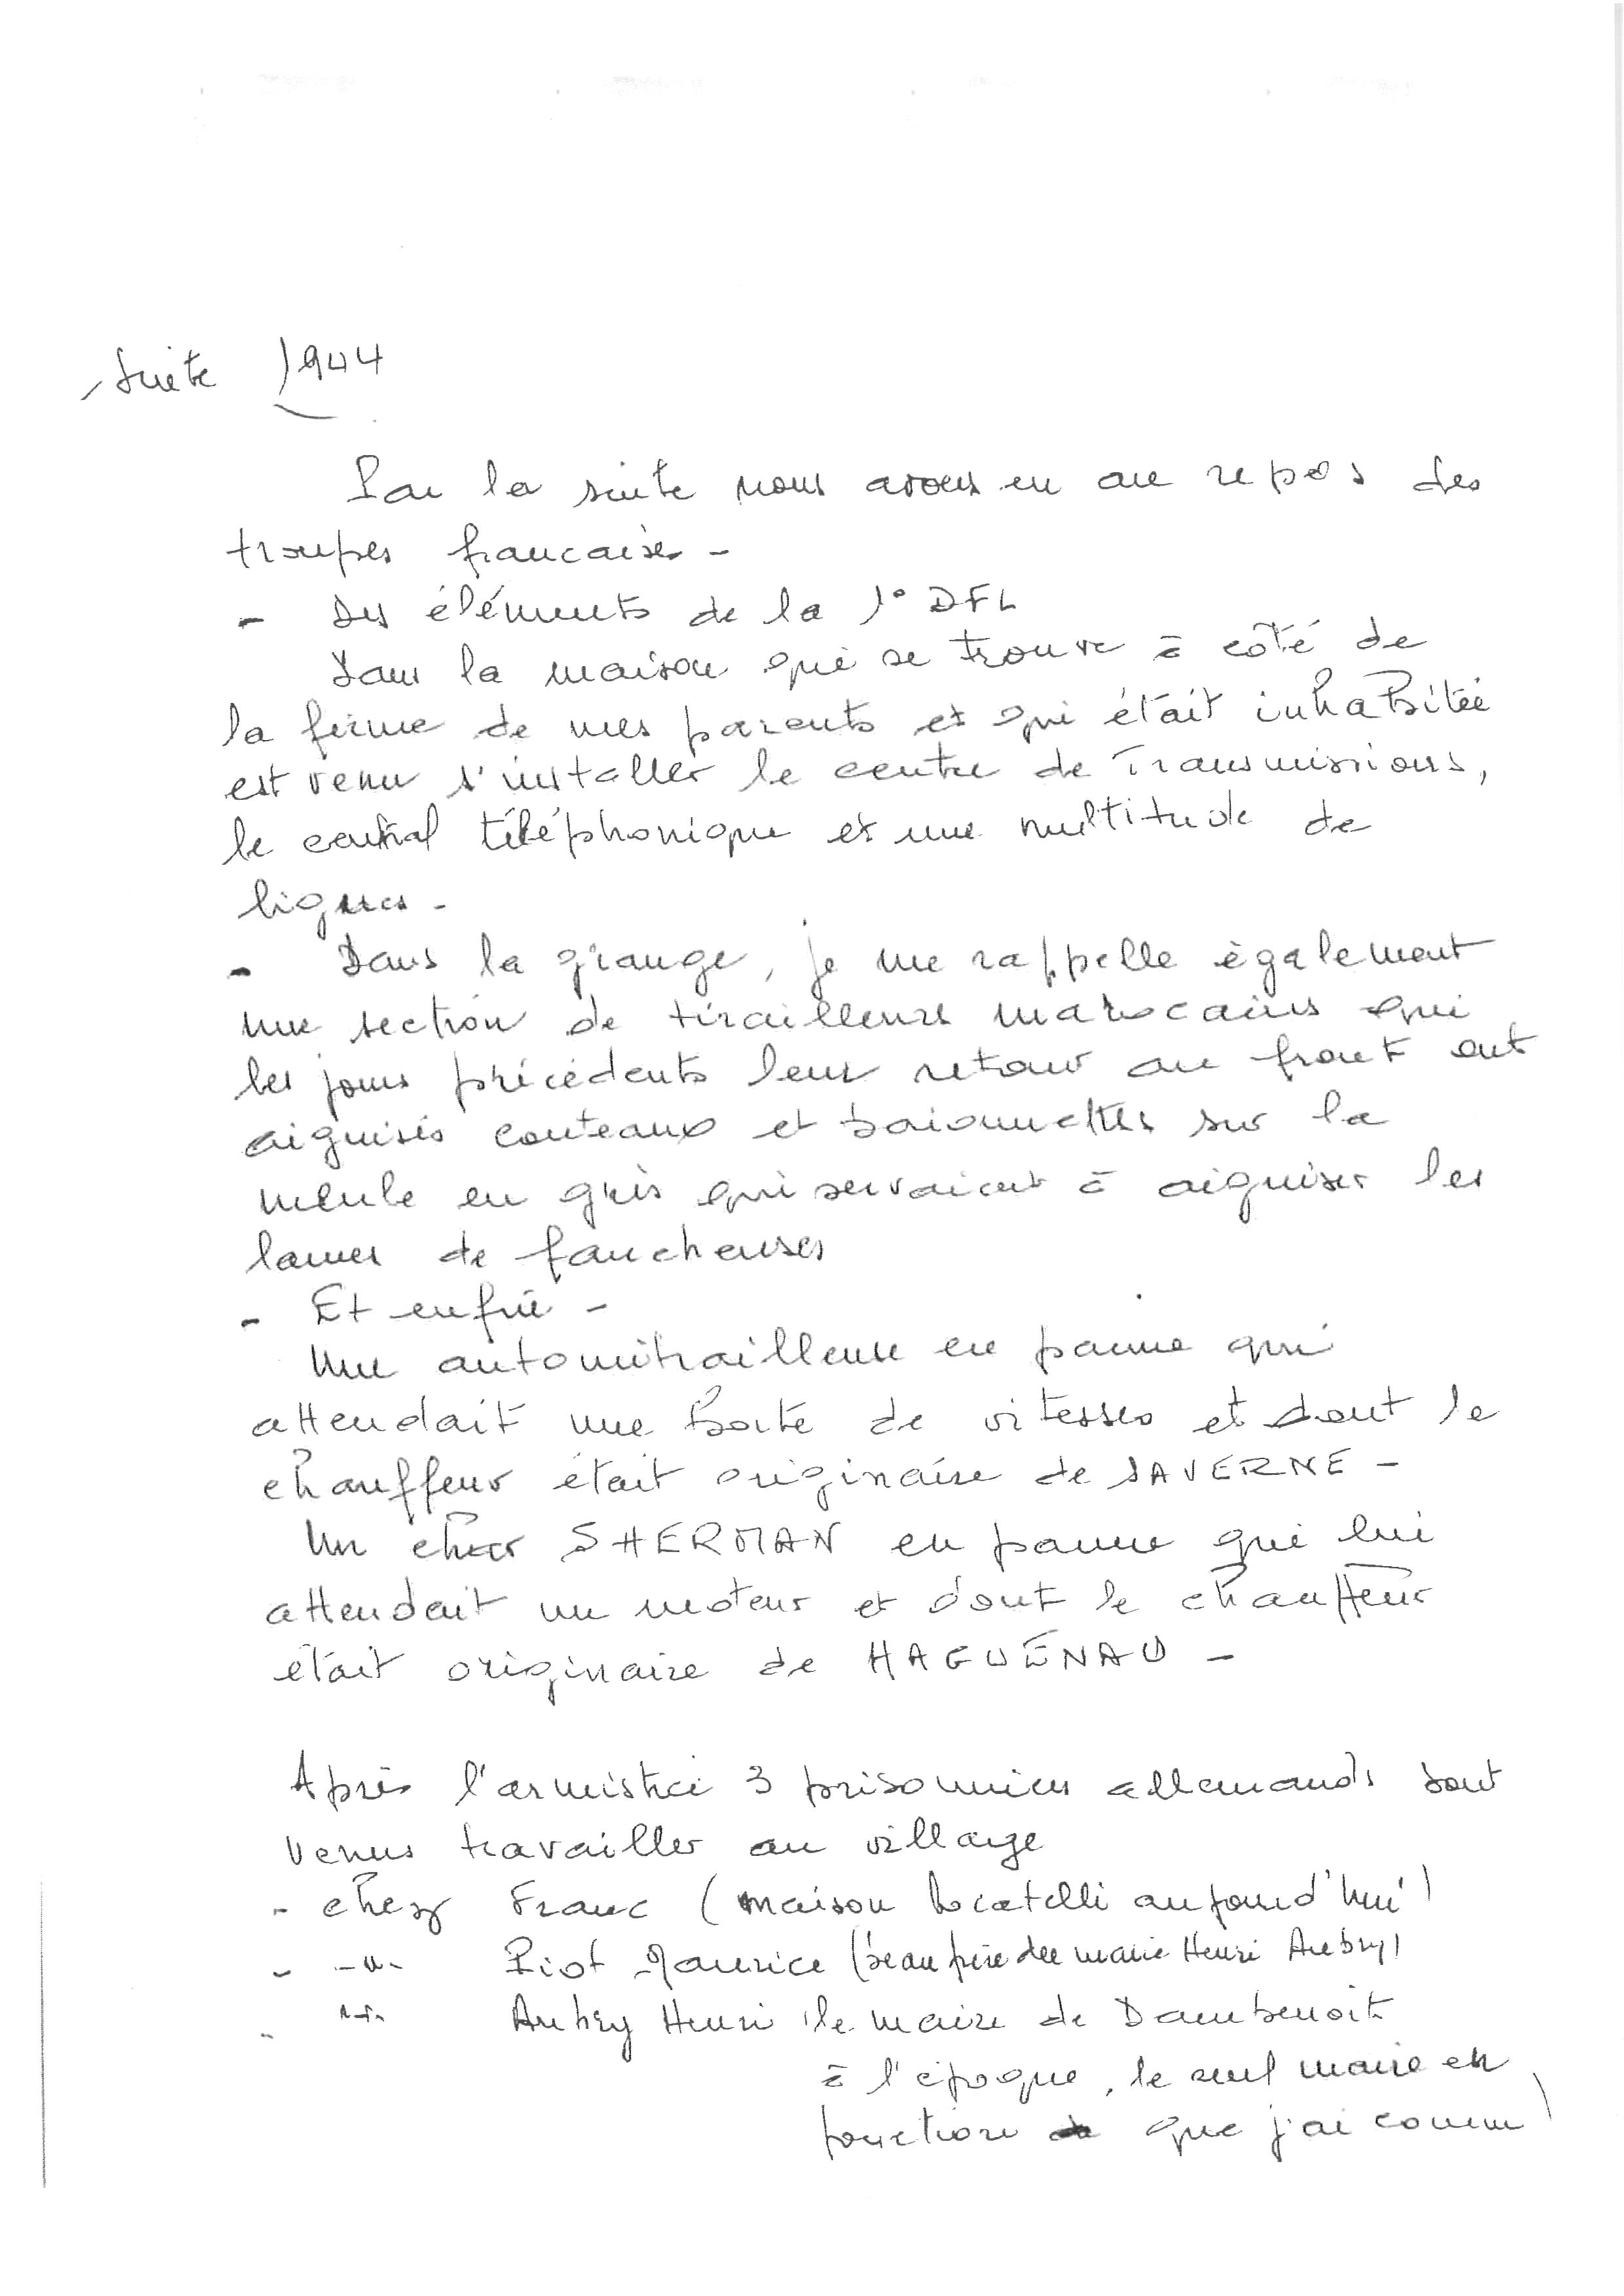 Suite 1944
Par la suite nous avons eu au repos des
troupes francaises -
- Des éléments de la 1° DFL
Dans la maison qui se trouve à côté de
la ferme de mes parents et qui était inhabitée
est venu s'installer le centre de Transmissions,
le central téléphonique et une multitude de
lignes -
- Dans la grange, je me rappelle également
une section de tirailleurs marocains qui
les jours précédents leur retour au front ont
aiguisés couteaux et baionnettes sur la
meule en grès qui servaient à aiguiser les
lames de faucheuses
- Et enfin -
Une automitrailleuse en panne qui
attendait une boite de vitesses et dont le
chauffeur était originaire de SAVERNE -
Un char SHERMAN en panne qui lui
attendait un moteur et dont le chauffeur
était originaire de HAGUENAU -
Après l'armistice 3 prisonniers allemands sont
venus travailler au village
- chez Franc (maison Locatelli aujourd'hui)
- -"- Piot Maurice (beau père du maire Henri Aubry)
- -"- Aubry Henri (le maire de Dambenoit
à l'époque, le seul maire en
fonction que j'ai connu)